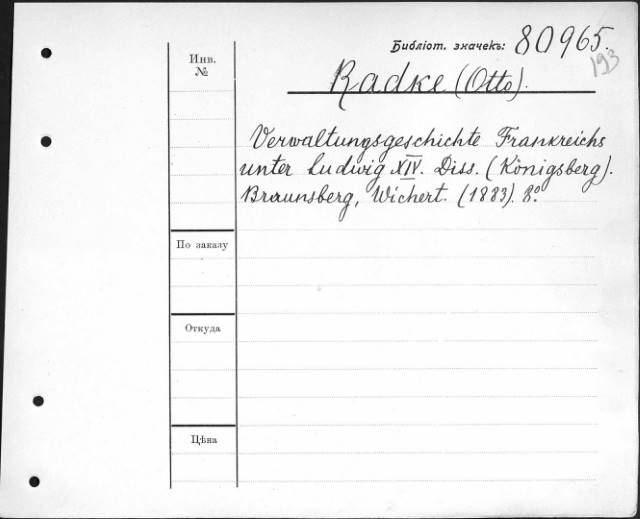 Библіот. значекъ: 80965.
193
Инв.
№
Radke (Otto).
Verwaltungsgeschichte Frankreichs
unter Ludwig XIV. Diss. (Königsberg).
Braunsberg, Wichert. (1883). 8º.
По заказу
Откуда
Цѣна